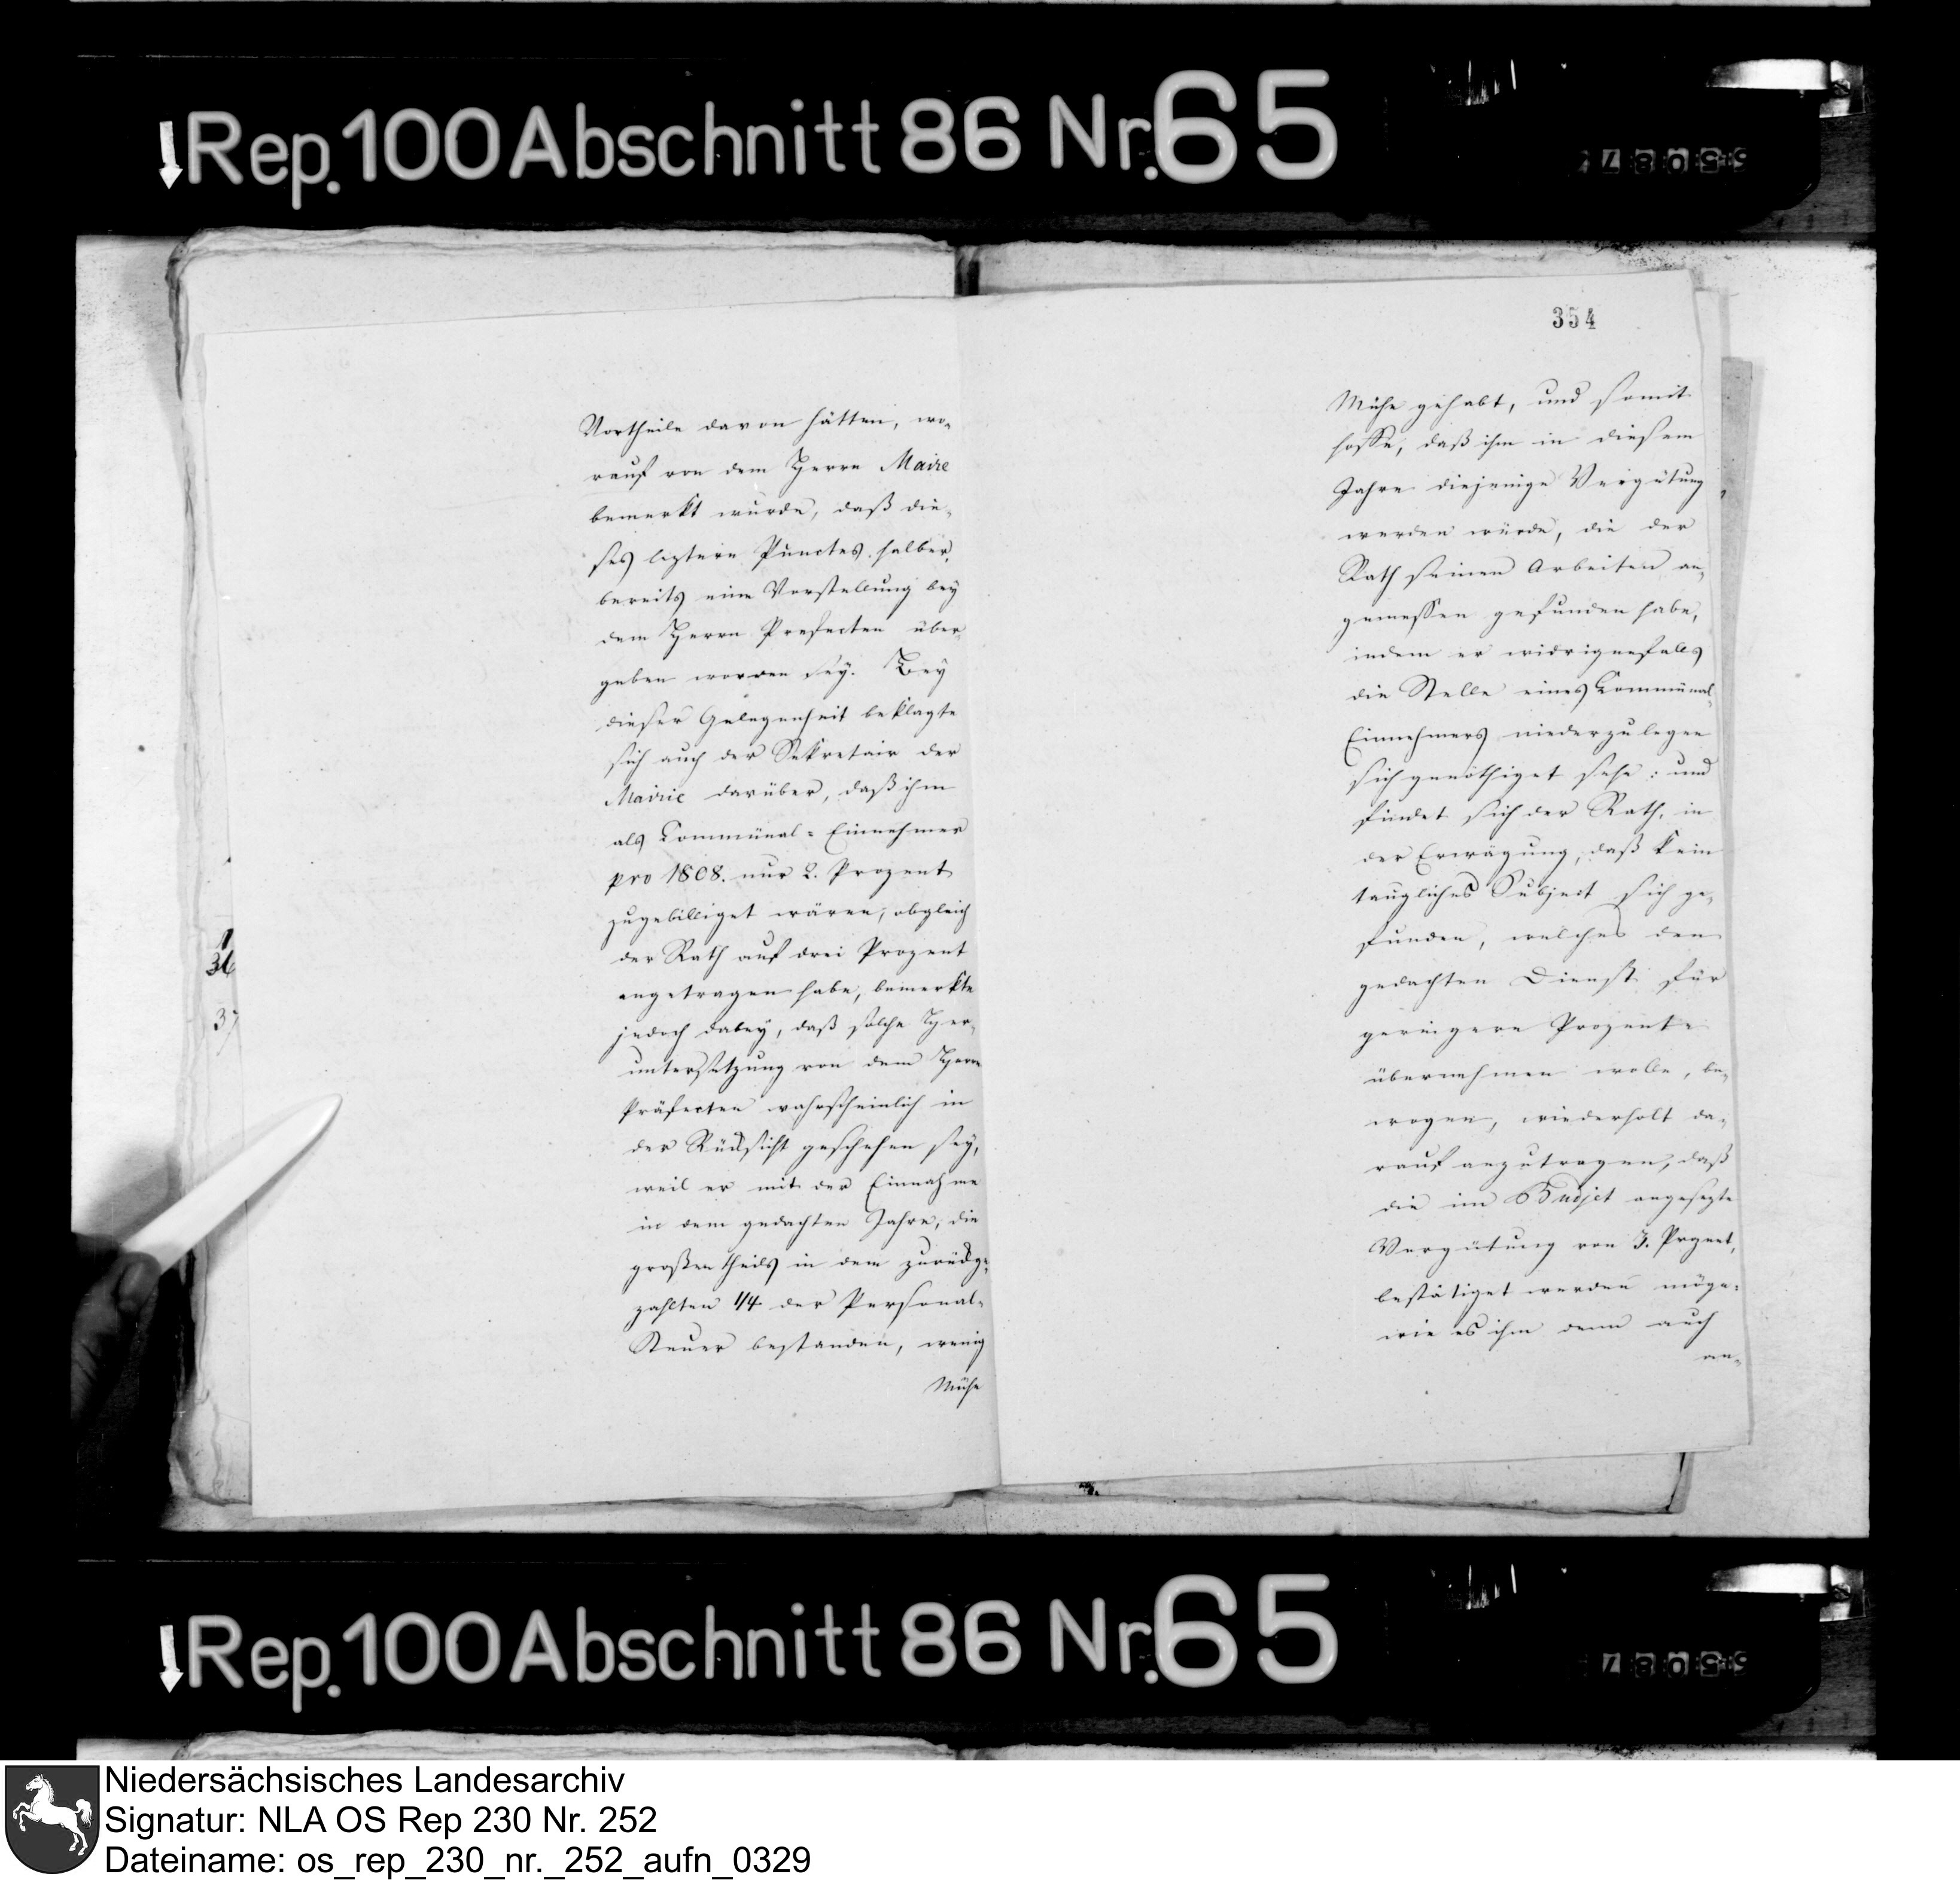 Rep. 100 Abschnitt 86 Nr. 65
Vortheile davon hätten, wo-
rauf von dem Herrn Maire
bemerkt wurde, daß die-
ses leztern Punctes halber
bereits eine Vorstellung bey
dem Herrn Prefecten über-
geben worden sey. Bey
dieser Gelegenheit beklagte
sich auch der Sekretair der
Mairie darüber, daß ihm
als Communal-Einnehmer
pro 1808. nur 2. Prozent
zugebilliget wären, obgleich
der Rath auf drei Prozent
angetragen habe, bemerkte
jedoch dabey, daß solche Her-
untersetzung von dem Herrn
Präfecten wahrscheinlich in
der Rücksicht geschehen sey,
weil er mit der Einnahme
in dem gedachten Jahre, die
großentheils in dem zurückge-
zahlten 1/4 der Personal-
Steuer bestanden, wenig
Mühe
36
37
354
Mühe gehabt, und somit
hoffe, daß ihm in diesem
Jahre diejenige Vergütung
werden würde, die der
Rath seinen Arbeiten an-
gemessen gefunden habe,
indem er widrigenfalls
die Stelle eines Communal-
Einnehmers niederzulegen
sich genöthiget sehe: und
findet sich der Rath, in
der Erwägung, daß kein
taugliches Subject sich ge-
funden, welches den
gedachten Dienst für
geringere Prozente
übernehmen wolle, be-
wogen, wiederholt da-
rauf anzutragen, daß
die im Budjet angesezte
Vergütung von 3. Przent,
bestätiget werden möge:
wie es ihm denn auch
an-
Rep. 100 Abschnitt 86 Nr. 65
Niedersächsisches Landesarchiv
Signatur: NLA OS Rep 230 Nr. 252
Dateiname: os_rep_230_nr._252_aufn_0329